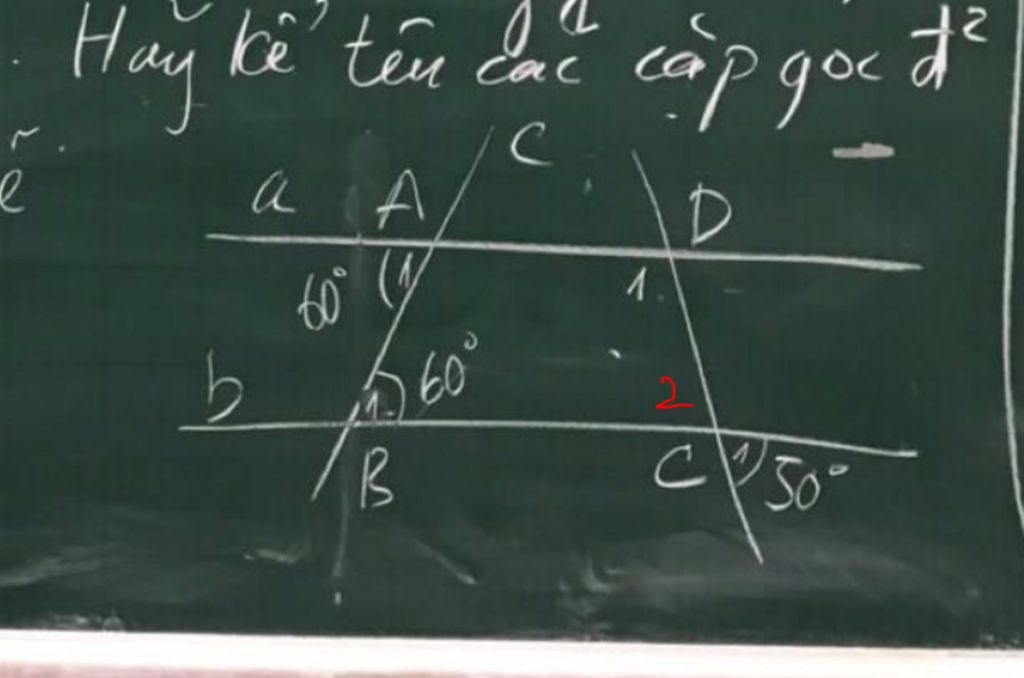 . Hãy kể tên các cặp góc đ²
ẽ.
C
a A D
60° 1 1
b 60° 2
1
B C 1 50°